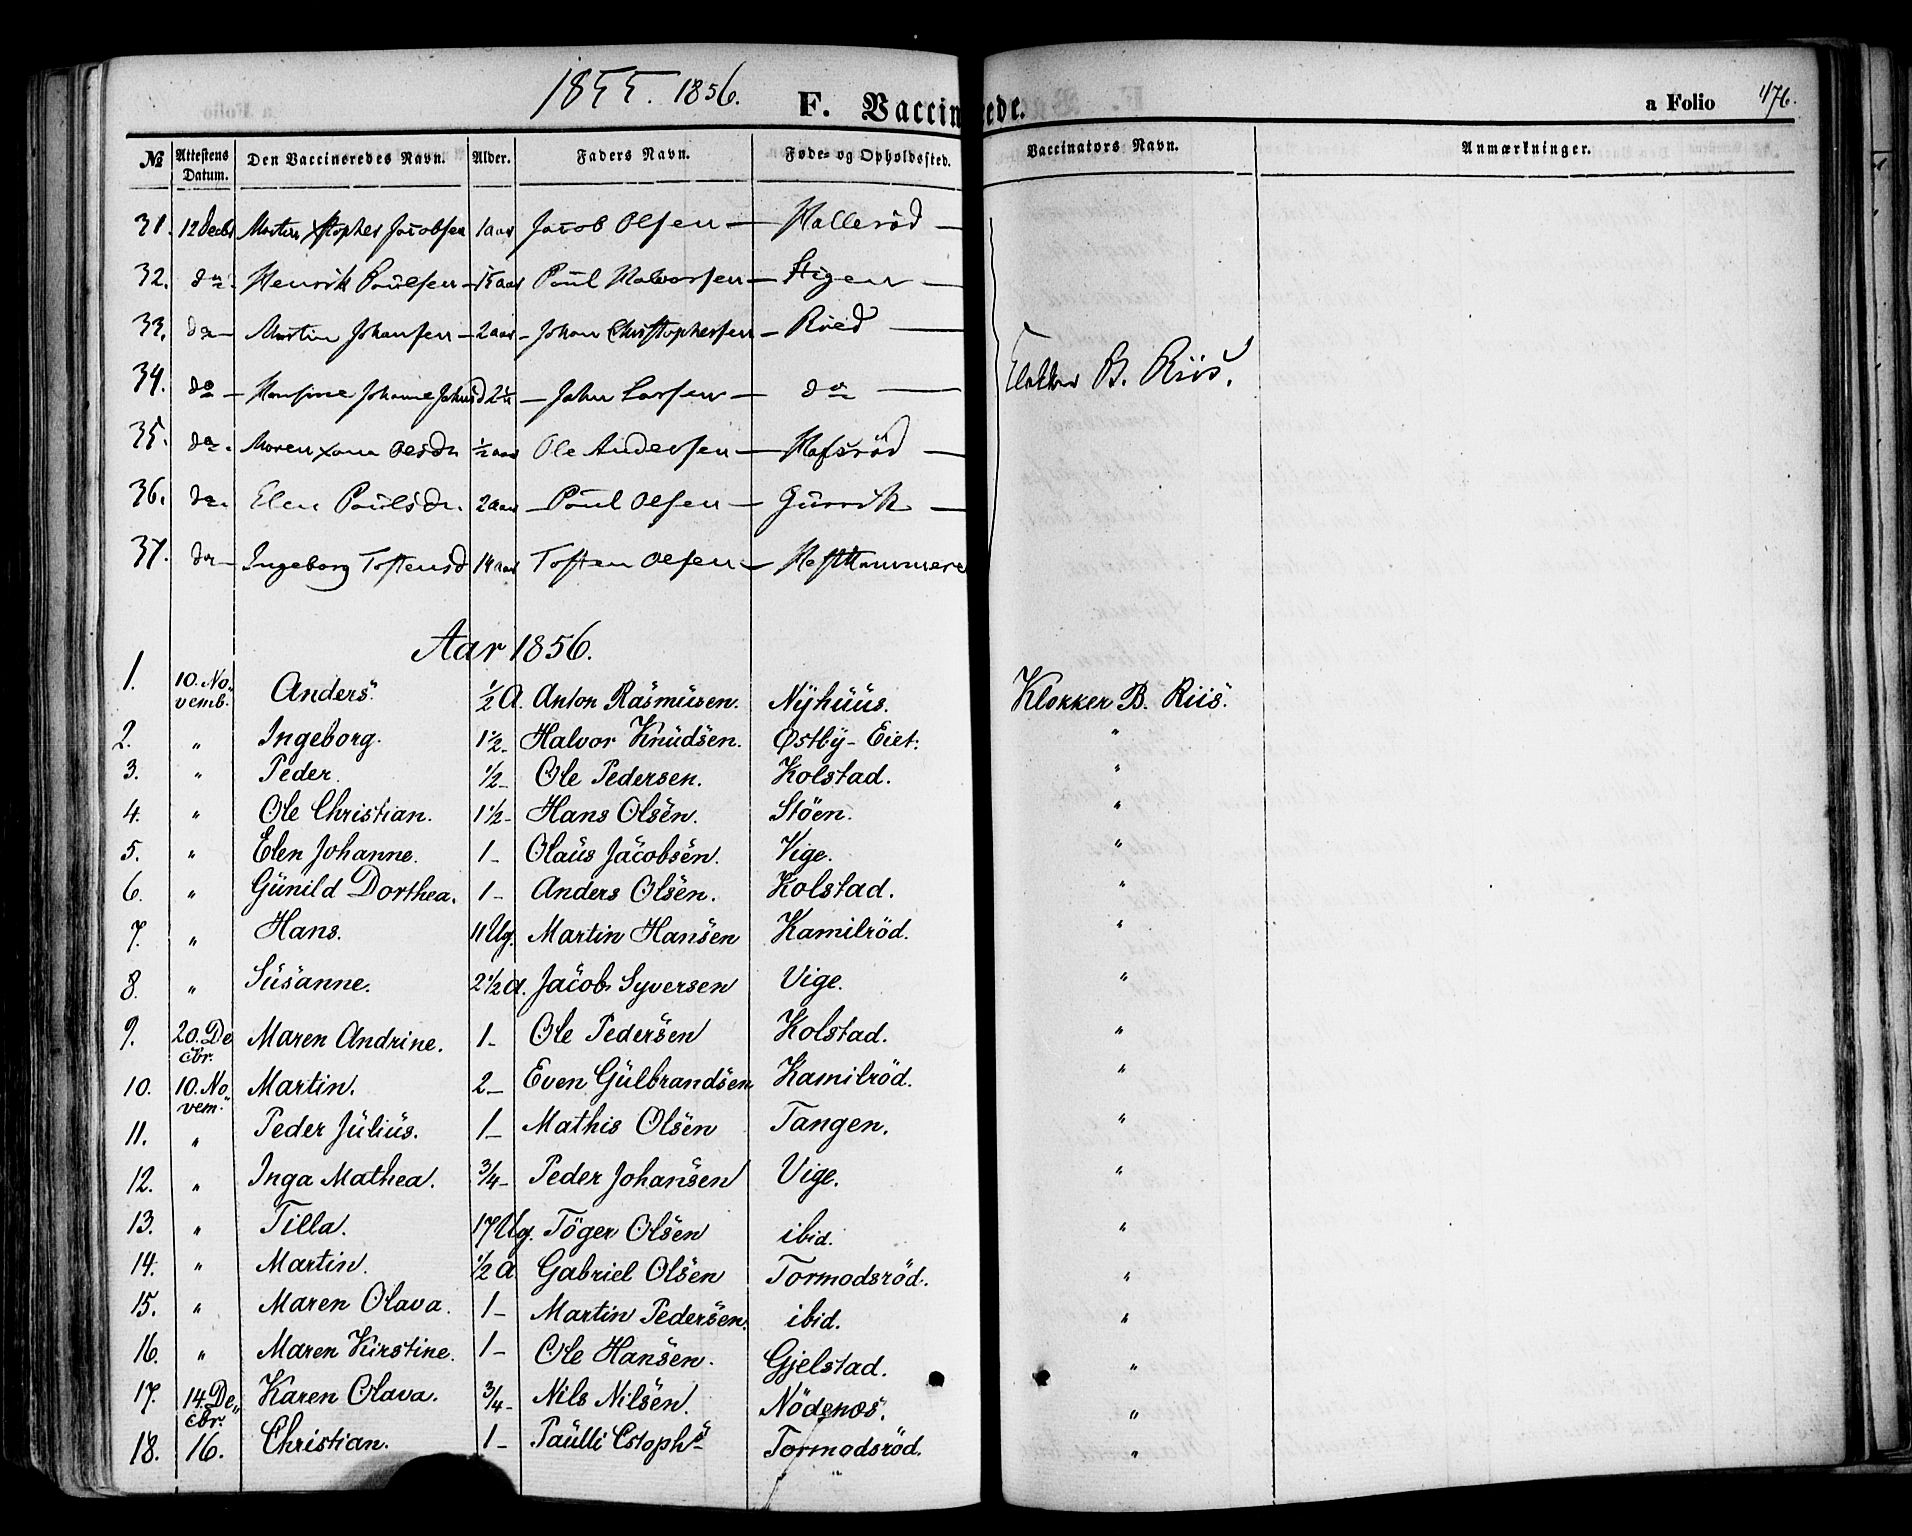 1855. 1856. F. Vaccinerede. a Folio 476.
№ Attestens Datum. Den Vaccineredes Navn. Alder. Faders Navn. Føde- og Opholdssted. Vaccinators Navn. Anmærkninger.
31. 12 Decbr Martin Xstopher Jacobsen 1 aar Jacob Olsen — Hallerød —
32. do. Henrik Paulsen — 15 aar Paul Halvorsen — Stigen —
33. do — Martin Johansen — 2 aar - Johan Christophersen — Røed —
34. do — Johanne 2½ — John Larsen — do — Klokker B. Riis.
35. do. Maren Xane Olsdr ½ aar Ole Andersen — Hafsröd —
36. do. Elen Paulsdr. 2 aar — Paul Olsen — Gurvik —
37. do — Ingeborg Tostensd 14 aar Tosten Olsen —
Aar 1856.
1. 10. No„vemb. Anders. ½ A. Anton Rasmusen. Nyhuus. Klokker B. Riis.
2. „ Ingeborg. 1½ - Halvor Knudsen. Østby - Eiet: „
3. „ Peder. ½ - Ole Pedersen. Kolstad. „
4. „ Ole Christian. 1½ - Hans Olsen. Stöen. „
5. „ Elen Johanne. 1 - Olaus Jacobsen. Vige. „
6. „ Gunild Dorthea. 1 - Anders Olsen. Kolstad. „
7. „ Hans. 11 Ug. Martin Hansen Kamilröd. „
8. „ Susanne. 2½ A. Jacob Syversen Vige. „
9. 20. Decbr. Maren Andrine. 1 - Ole Pedersen Kolstad. „
10. 10. No„vem. Martin. 2 - Even Gulbrandsen Kamilröd. „
11. „ Peder Julius. 1 - Mathis Olsen Tangen. „
12. „ Inga Mathea. ¾ - Peder Johansen Vige. „
13. „ Tilla. 17 Ug. Töger Olsen ibid. „
14. „ Martin. ½ A Gabriel Olsen Tormodsröd. „
15. „ Maren Olava. 1 - Martin Pedersen. ibid. „
16. „ Maren Kirstine. 1 - Ole Hansen. Gjelstad. „
17. 14. De„cbr. Karen Olava. ¾ - Nils Nilsen. Nödenes. „
18. 16. Christian. 1 - Paulli Cstophs Tormodsröd. „